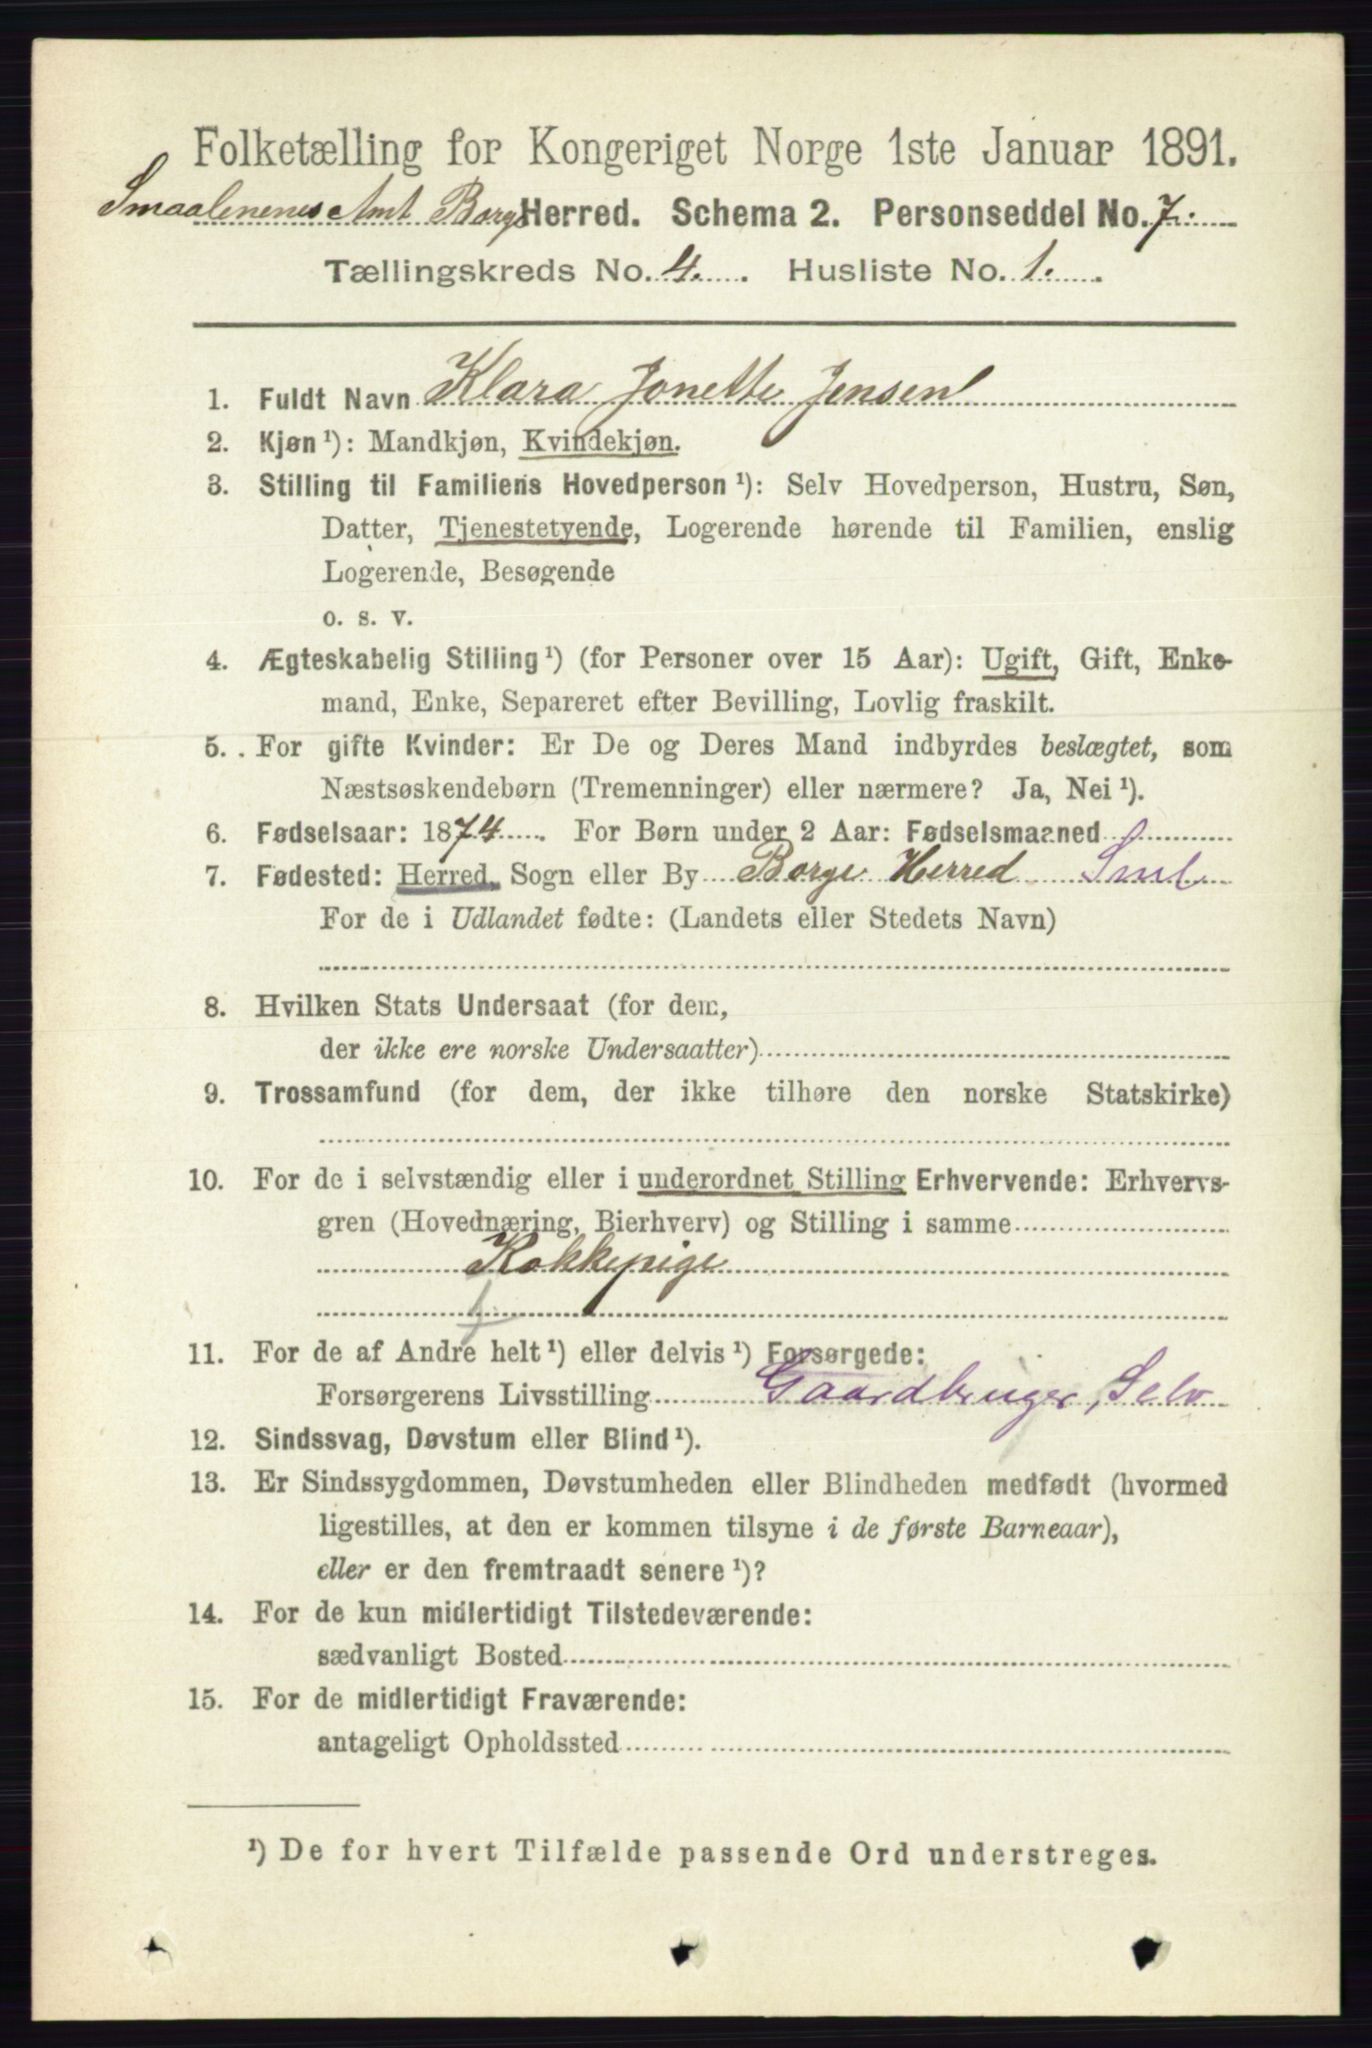 Folketælling for Kongeriget Norge 1ste Januar 1891.
Smaalenenes Amt Borge Herred. Schema 2. Personseddel No. 7.
Tællingskreds No. 4. Husliste No. 1.
1. Fuldt Navn Klara Jonette Jensen
2. Kjøn ¹): Mandkjøn, Kvindekjøn.
3. Stilling til Familiens Hovedperson ¹): Selv Hovedperson, Hustru, Søn,
Datter, Tjenestetyende, Logerende hørende til Familien, enslig
Logerende, Besøgende
o. s. v.
4. Ægteskabelig Stilling ¹) (for Personer over 15 Aar): Ugift, Gift, Enke-
mand, Enke, Separeret efter Bevilling, Lovlig fraskilt.
5. For gifte Kvinder: Er De og Deres Mand indbyrdes beslægtet, som
Næstsøskendebørn (Tremenninger) eller nærmere? Ja, Nei ¹).
6. Fødselsaar: 1874 For Børn under 2 Aar: Fødselsmaaned
7. Fødested: Herred, Sogn eller By Borge Herred Sml
For de i Udlandet fødte: (Landets eller Stedets Navn)
8. Hvilken Stats Undersaat (for dem,
der ikke ere norske Undersaatter)
9. Trossamfund (for dem, der ikke tilhøre den norske Statskirke)
10. For de i selvstændig eller i underordnet Stilling Erhvervende: Erhvervs-
gren (Hovednæring, Bierhverv) og Stilling i samme
Kokkepige
11. For de af Andre helt ¹) eller delvis ¹) Forsørgede:
Forsørgerens Livsstilling Gaardbruger, Selv
12. Sindssvag, Døvstum eller Blind ¹).
13. Er Sindssygdommen, Døvstumheden eller Blindheden medfødt (hvormed
ligestilles, at den er kommen tilsyne i de første Barneaar),
eller er den fremtraadt senere ¹)?
14. For de kun midlertidigt Tilstedeværende:
sædvanligt Bosted
15. For de midlertidigt Fraværende:
antageligt Opholdssted
¹) De for hvert Tilfælde passende Ord understreges.